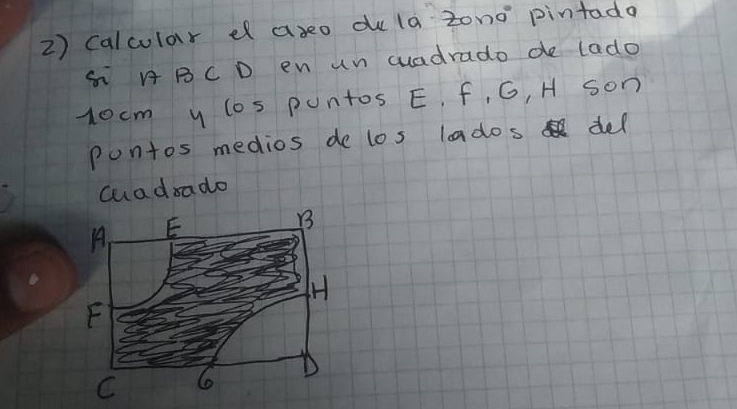 2) Calcular el areo de la zono pintado
si A B C D en un cuadrado de lado
10cm y los puntos E, f, G, H son
puntos medios de los lados del
cuadrado
A E B
F H
C G D